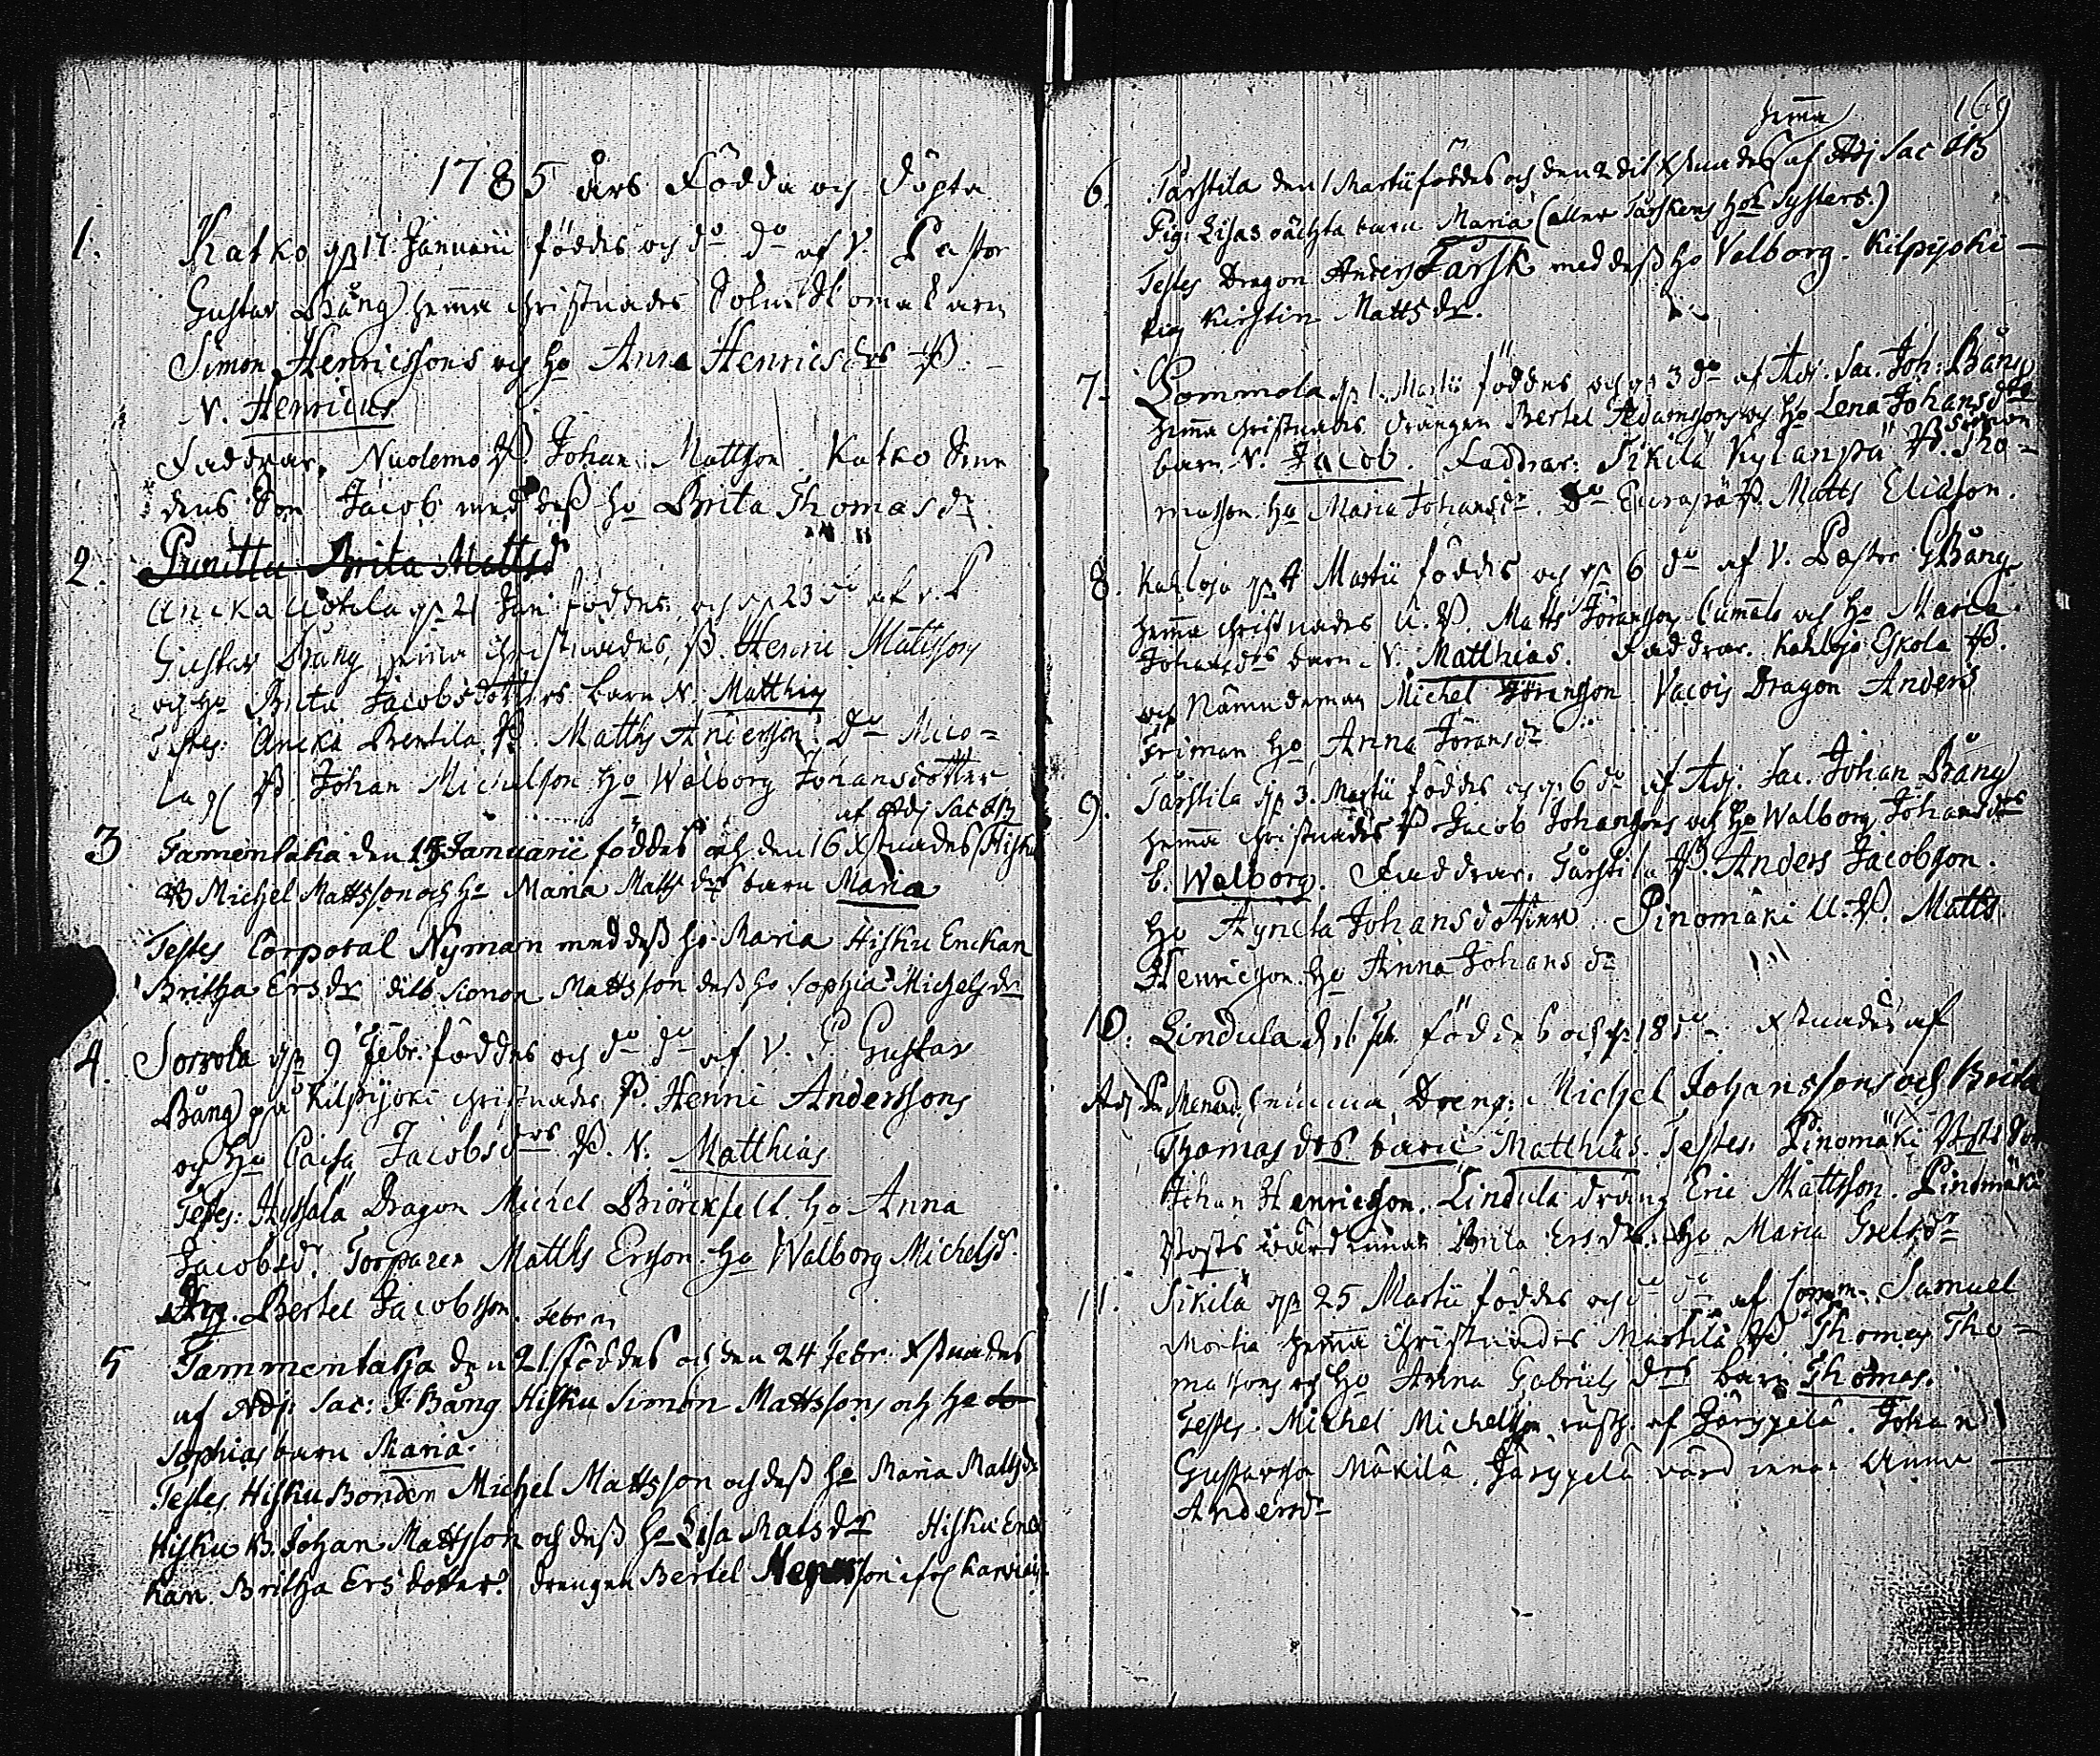 1785 års Födda och döpta
1. Katko d. 17 Januarii föddes och do do af V. Pastor
Gustav Bång hemma christnades
Simon Henricssons och ho Anna Henricsdrs
N. Henricus
Faddrar. Nuolemo B. Johan Mattson. Katko
Jacob med dess ho Brita Thomasdr
2. Brita Mattsd
Ancka Uotila d. 21 Jan. föddes och d. 23 do af V. P
Gustav Bång hemma christnades, B. Henric Mattsson
och ho Brita Jacobsdotters barn N. Matthias
Testes: Ancka Bentila B. Matths Andersson. Do Mico=
la B. Johan Michelson ho Walborg Johansdotter
af Adj Sac JB
3 Tamentaka den 15 Januarii föddes och den 16 Xstnades Hisku
B Michel Mattsson och ho Maria Matts drs barn Maria
Testes Corporal Nyman med dess ho Maria Hisku Enckan
Britha Ersdr dito Simon Mattsson dess ho Sophia Michelsdr
4. Sorrola d. 9 Febr. föddes och do do af V. P. Gustav
Bång på Kilpijoki christnades B. Henric Anderssons
och ho Caisa Jacobsdrs B. N. Matthias
Testes: Dragon Michel Biörckfelt ho Anna
Jacobsd. Torparen Matths Erson ho Walborg Michelsd.
Drg. Bertel Jacobsson.
Febr.
5 Tammentaka den 21 föddes och den 24 Febr. Xstnades
af Adj. Sac: J. Bång Hisku Simon Mattssons och ho
Sophias barn Maria.
Testes Hisku Bonden Michel Mattsson och dess ho Maria Mattsdr
Hisku B. Johan Mattsson och dess ho Lisa Matsdr Hisku Enc
kan Britha Ersdotter. drengen Bertel
169
hemma
6. Tarstila den 1 Martii föddes och den 2 dit Xstnades af Adj Sac JB
Pig. Lisas oächta barn Maria (eller Tarskens hos Systers.)
Testes Dragon Anders Tarsk med dess ho Valborg. Kilpijoki
pig Kirstin Mattsdr.
7. Sommola d. 1. Martii föddes och d. 3 do af Adj. Sac. Joh: Bång
hemma christnades drängen Bertel Adamssons och ho Lena Johansdrs
barn N. Jacob. Faddrar: Sikilä Kylänpä B. Simon Tho=
masson ho Maria Johansdr. Do Eurapä B. Matts Eliasson.
8. Kahloja d. 4 Martii föddes och d. 6 do af V. Pastor GBång
hemma christnades U. B. Matts Jöransson och ho Maria
Johansdrs barn N. Matthias. Faddrar. Kahloja Eskola B.
och Nämndeman Michel Jöransson Dragon Anders
Friman ho Anna Jöransdr
9. Tarstila d. 3. Martii föddes och d. 6 do af Adj. Sac. Johan Bång
hemma christnades B Jacob Johanssons och ho Walborg Johansdrs
b. Walborg. Faddrar. Tarstila B. Anders Jacobsson.
ho Agneta Johansdotter. Pinomäki U. B. Matts
Henricsson ho Anna Johansdr
10. Lindula d. 16 Feb. föddes och d. 18 do Xstnades af
Adj. Drengs Michel Johanssons och Brita
Thomasdrs barn Matthias. Testes. Pinomäki
Johan Henricsson. Lindula dräng Eric Mattsson. Pinomäki
wärdinnan Brita Ersdr. ho Maria
11. Sikilä d. 25 Martii föddes och do do af Comm. Samuel
hemma christnades Martila B. Thomas Tho=
massons och ho Anna Gabriels drs barn Thomas.
Testes. Michel Michelsson rusth. af Järppelä. Johan
Gustavson Mäkilä. Järppelä värdinnan Anna
Andersdr